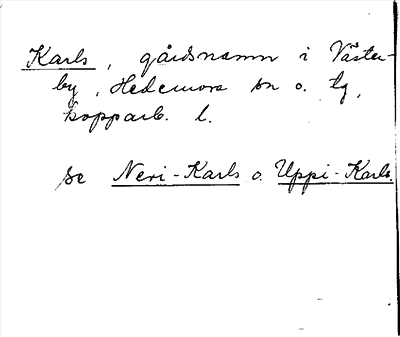 Karls, gårdsnamn i Väster-
by, Hedemora sn o. tg,
Kopparb. l.
se Neri-Karls o. Uppi-Karls.